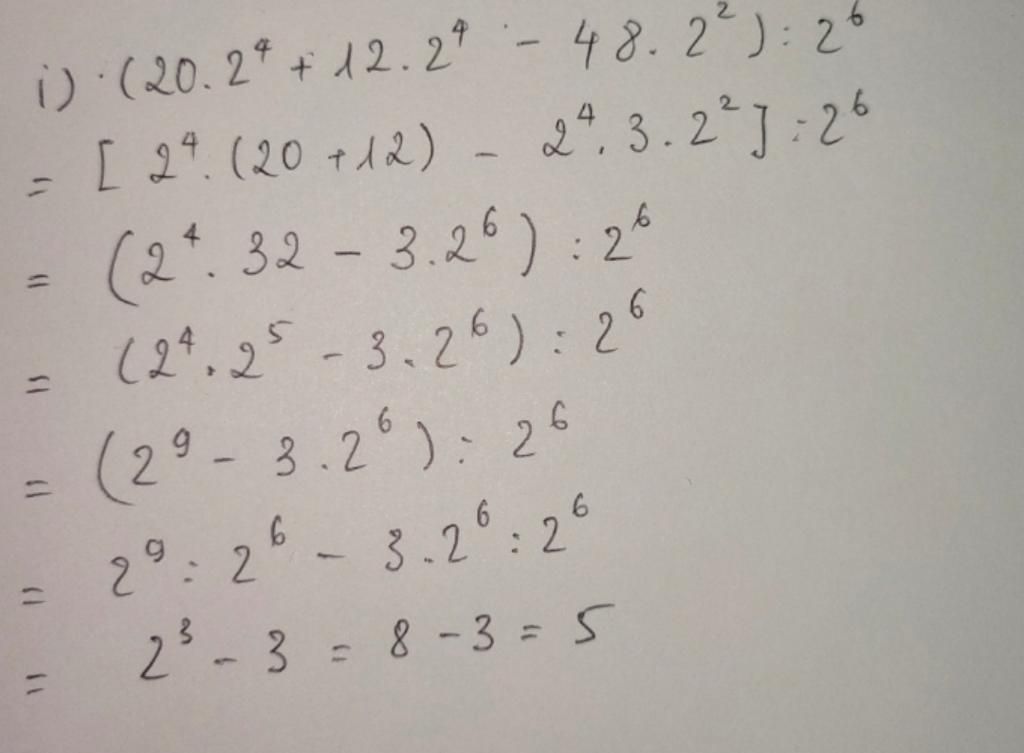 i) (20.2⁴ + 12.2⁴ - 48.2²) : 2⁶
= [2⁴.(20 + 12) - 2⁴.3.2²] : 2⁶
= (2⁴.32 - 3.2⁶) : 2⁶
= (2⁴.2⁵ - 3.2⁶) : 2⁶
= (2⁹ - 3.2⁶) : 2⁶
= 2⁹ : 2⁶ - 3.2⁶ : 2⁶
= 2³ - 3 = 8 - 3 = 5